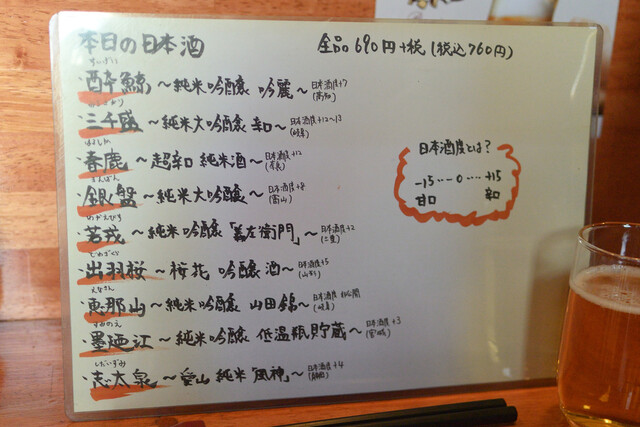 本日の日本酒 全品690円+税(税込760円)
すいげい
・酔鯨 〜純米吟醸 吟麗〜 日本酒度+7 (高知)
みちさかり
・三千盛 〜純米大吟醸 辛口〜 日本酒度+12〜13 (岐阜)
はるしか
・春鹿 〜超辛口 純米酒〜 日本酒度+12 (奈良)
ぎんばん
・銀盤 〜純米大吟醸〜 日本酒度+8 (富山)
わかえびす
・若戎 〜純米吟醸「義左衛門」〜 日本酒度+2 (三重)
でわざくら
・出羽桜 〜桜花 吟醸酒〜 日本酒度+5 (山形)
えなさん
・恵那山 〜純米吟醸 山田錦〜 日本酒度 (岐阜)
すみのえ
・墨廼江 〜純米吟醸 低温瓶貯蔵〜 日本酒度+3 (宮城)
しだいずみ
・志太泉 〜愛山 純米「風神」〜 日本酒度+4 (静岡)
日本酒度とは?
-15…0…+15
甘口 辛口